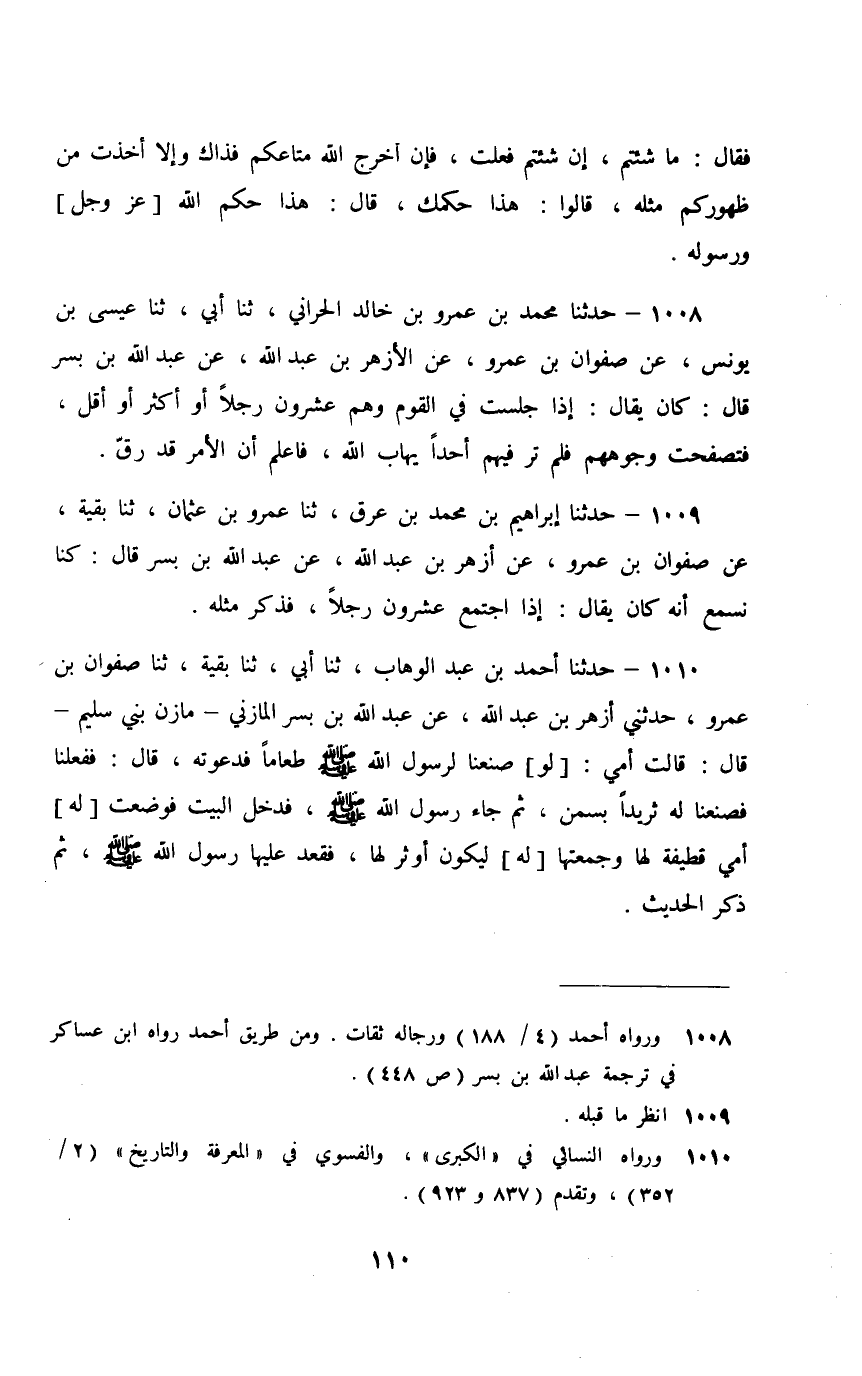 فقال : ما شئتم ، إن شئتم فعلت ، فإن أخرج الله متاعكم فذاك وإلا أخذت من
ظهوركم مثله ، قالوا : هذا حكمك ، قال : هذا حكم الله [ عز وجل ]
ورسوله .
١٠٠٨ – حدثنا محمد بن عمرو بن خالد الحراني ، ثنا أبي ، ثنا عيسى بن
يونس ، عن صفوان بن عمرو ، عن الأزهر بن عبد الله ، عن عبد الله بن بسر
قال : كان يقال : إذا جلست في القوم وهم عشرون رجلاً أو أكثر أو أقل ،
فتصفحت وجوههم فلم تر فيهم أحداً يهاب الله ، فاعلم أن الأمر قد رقّ .
١٠٠٩ – حدثنا إبراهيم بن محمد بن عرق ، ثنا عمرو بن عثمان ، ثنا بقية ،
عن صفوان بن عمرو ، عن أزهر بن عبد الله ، عن عبد الله بن بسر قال : كنا
نسمع أنه كان يقال : إذا اجتمع عشرون رجلاً ، فذكر مثله .
١٠١٠ – حدثنا أحمد بن عبد الوهاب ، ثنا أبي ، ثنا بقية ، ثنا صفوان بن
عمرو ، حدثني أزهر بن عبد الله ، عن عبد الله بن بسر المازني – مازن بني سليم –
قال : قالت أمي : [ لو ] صنعنا لرسول الله ﷺ طعاماً فدعوته ، قال : ففعلنا
فصنعنا له ثريداً بسمن ، ثم جاء رسول الله ﷺ ، فدخل البيت فوضعت [ له ]
أمي قطيفة لها وجمعتها [ له ] ليكون أوثر لها ، فقعد عليها رسول الله ﷺ ، ثم
ذكر الحديث .
١٠٠٨ ورواه أحمد ( ٤ / ١٨٨ ) ورجاله ثقات . ومن طريق أحمد رواه ابن عساكر
في ترجمة عبد الله بن بسر ( ص ٤٤٨ ) .
١٠٠٩ انظر ما قبله .
١٠١٠ ورواه النسائي في « الكبرى » ، والفسوي في « المعرفة والتاريخ » ( ٢ /
٣٥٢ ) ، وتقدم ( ٨٣٧ و ٩٢٣ ) .
١١٠